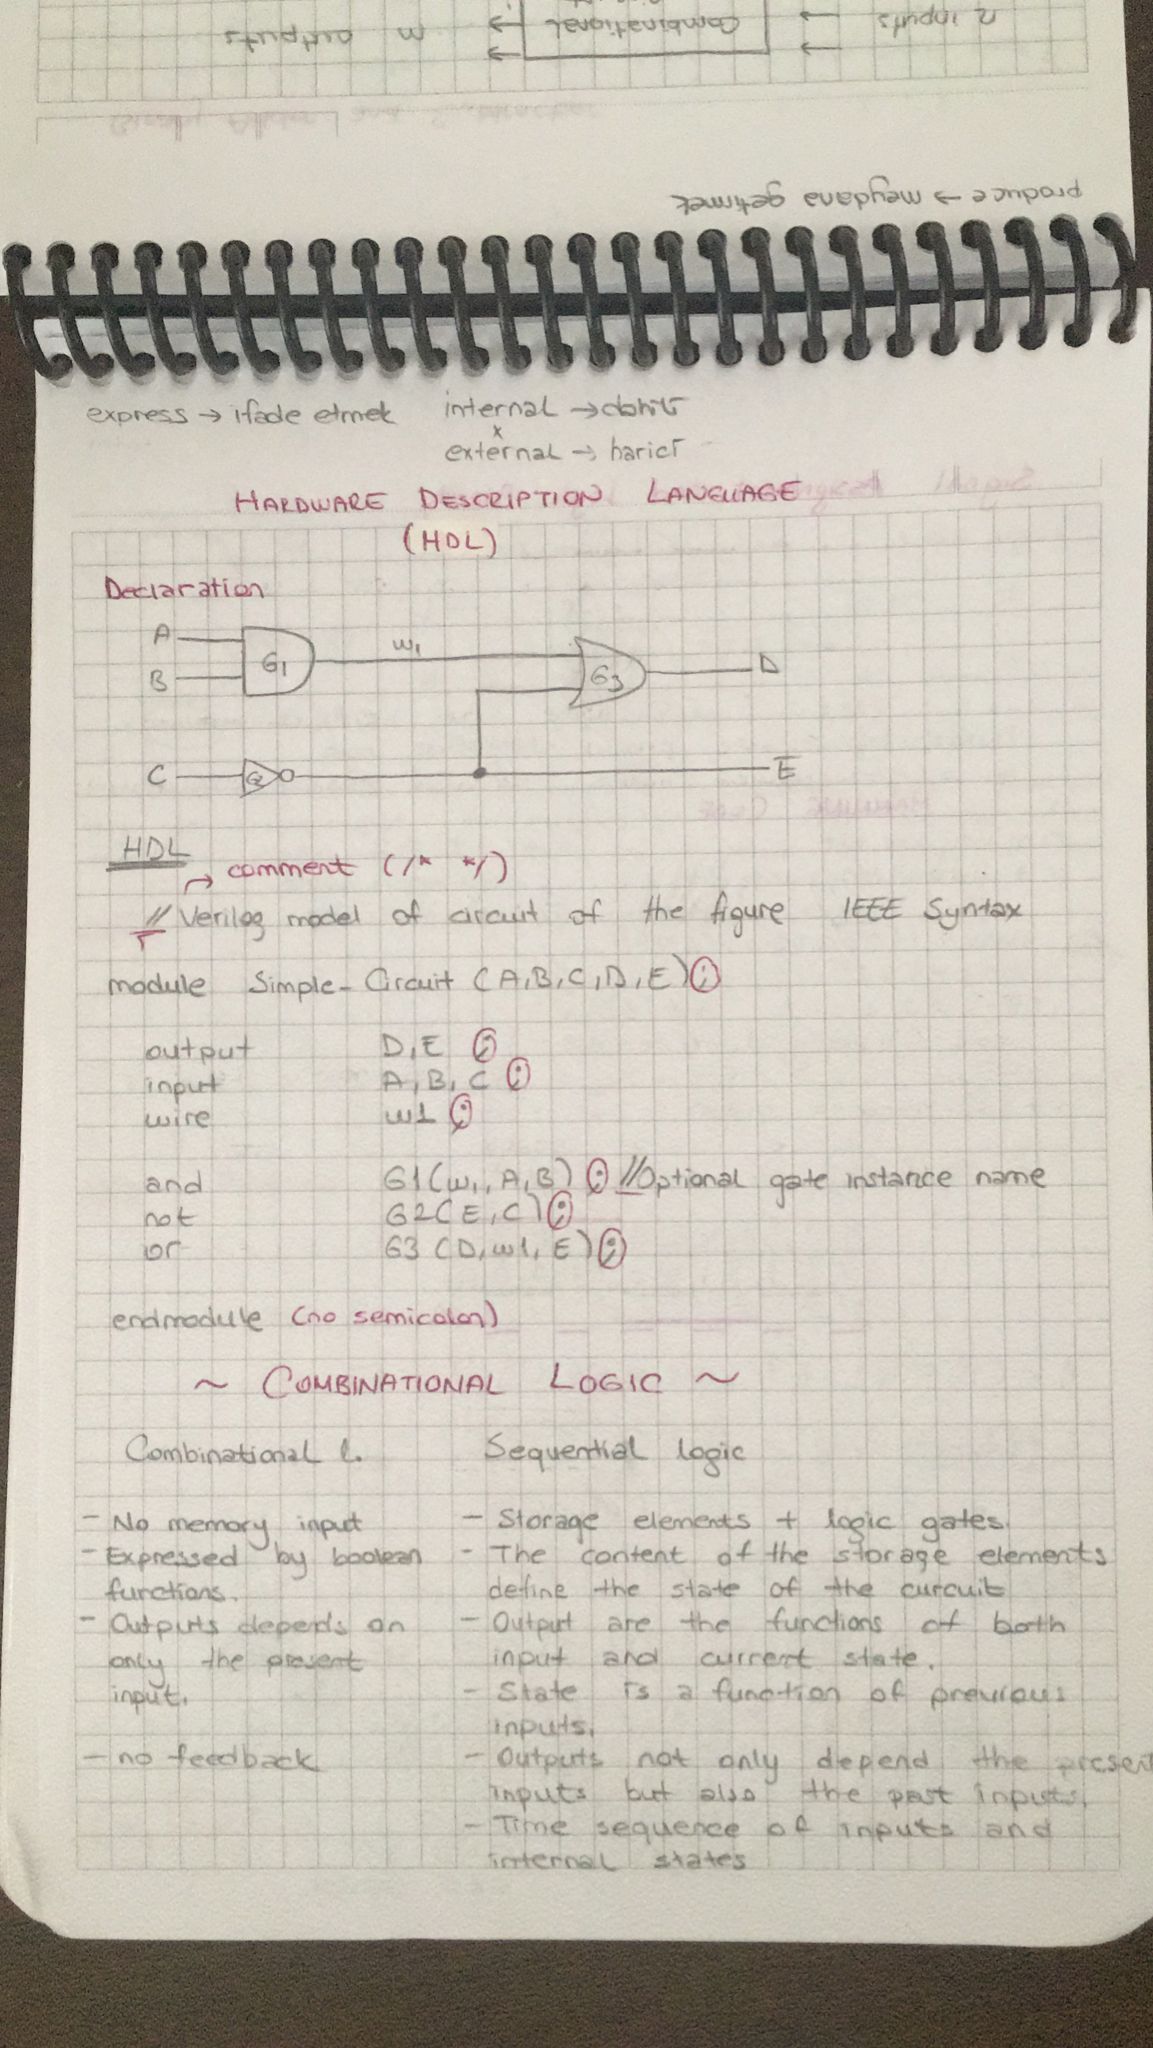 n inputs
Combinational
m outputs
produce → meydana getirmek
express → ifade etmek internal → dahili
x
external → harici
HARDWARE DESCRIPTION LANGUAGE
(HDL)
Declaration
A
B
G1
w1
G3
D
C
G2
E
HDL
→ comment (/* */)
// Verilog model of circuit of the figure IEEE Syntax
module Simple_Circuit (A,B,C,D,E);
output D,E ;
input A,B,C ;
wire w1 ;
and G1(w1,A,B) ; //Optional gate instance name
not G2(E,C) ;
or G3 (D,w1,E) ;
endmodule (no semicolon)
~ COMBINATIONAL LOGIC ~
Combinational l. Sequential logic
- No memory input
- Expressed by boolean
functions.
- Outputs depends on
only the present
input.
- no feedback
- Storage elements + logic gates.
- The content of the storage elements
define the state of the curcuit
- Output are the functions of both
input and current state.
- State is a function of previous
inputs.
- Outputs not only depend the present
inputs but also the past inputs.
- Time sequence of inputs and
internal states